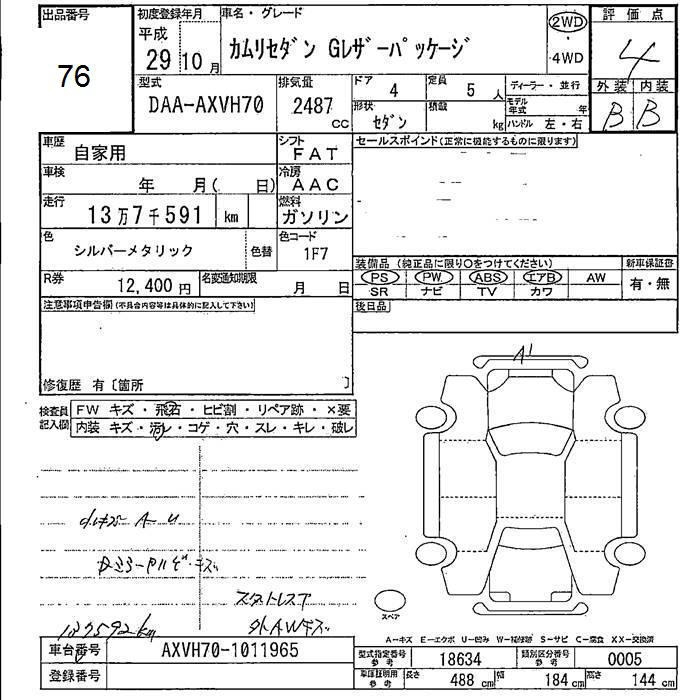 出品番号
76
初度登録年月
平成
29 10 月
車名・グレード
カムリセダン Gレザーパッケージ
2WD
・4WD
評価点
4
型式
DAA-AXVH70
排気量
2487 CC
ドア
4
定員
5 人
ディーラー・並行
形状
セダン
積載
kg
モデル年式 年
ハンドル 左・右
外装 内装
B B
車歴
自家用
シフト
FAT
車検
年 月( 日)
冷房
AAC
走行
13万7千591 km
燃料
ガソリン
色
シルバーメタリック
色替
色コード
1F7
R券
12,400円
名変通知期限
月 日
セールスポイント(正常に機能するものに限ります)
装備品(純正品に限り○をつけてください)
新車保証書
PS PW ABS エアB AW
有・無
SR ナビ TV カワ
後日品
注意事項申告欄(不具合内容等は具体的に記入して下さい)
修復歴 有〔箇所 〕
検査員記入欄
FW キズ・飛石・ヒビ割・リペア跡・×要
内装 キズ・汚レ・コゲ・穴・スレ・キレ・破レ
A1
A-U
キズ
スタットレスア
外AWキズ
137592km
スペア
A-キズ E-エクボ U-凹み W-補修跡 S-サビ C-腐食 XX-交換済
車台番号
AXVH70-1011965
登録番号
型式指定番号 参考
18634
類別区分番号 参考
0005
車庫証明用 参考
長さ 488 cm 幅 184 cm 高さ 144 cm